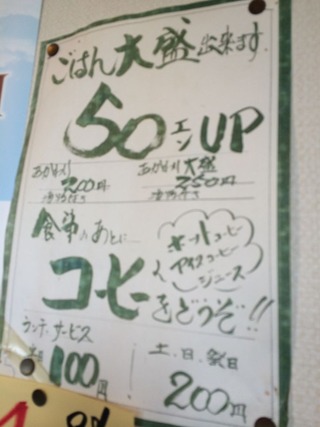 ごはん大盛出来ます.
50エンUP
おかわり おかわり大盛
200円 250円
食事のあとに
ホットコーヒー
アイスコーヒー
ジュース
コーヒーをどうぞ!!
ランチ.サービス
土.日.祭日
100円 200円